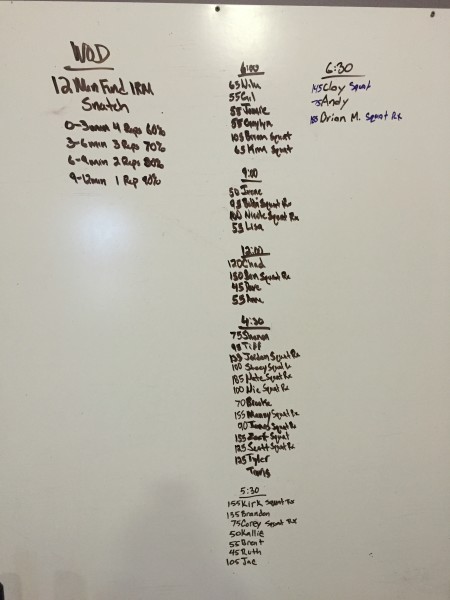 WOD
12 Min Fund 1RM
Snatch
0-3min 4 Reps 60%
3-6min 3 Reps 70%
6-9min 2 Reps 80%
9-12min 1 Rep 90%
6:00
55 Gail
55 Jamie
105 Brian Squat
65 Kim Squat
9:00
50 Irene
95 Bobbi Squat Rx
100 Nicole Squat Rx
55 Lisa
12:00
120 Chad
130 Ben Squat Rx
45 Dave
55 Anne
4:30
75 Shanon
95 Tiff
135 Jordan Squat Rx
100 Stacey Squat Rx
185 Nate Squat Rx
100 Nic Squat Rx
70 Brooke
155 Manny Squat Rx
90 James Squat Rx
155 Zack Squat
125 Scott Squat Rx
125 Tyler
Travis
5:30
155 Kirk Squat Rx
135 Brandon
75 Corey Squat RX
50 Kallie
55 Brent
45 Ruth
105 Jae
6:30
145 Clay Squat
75 Andy
Brian M. Squat Rx